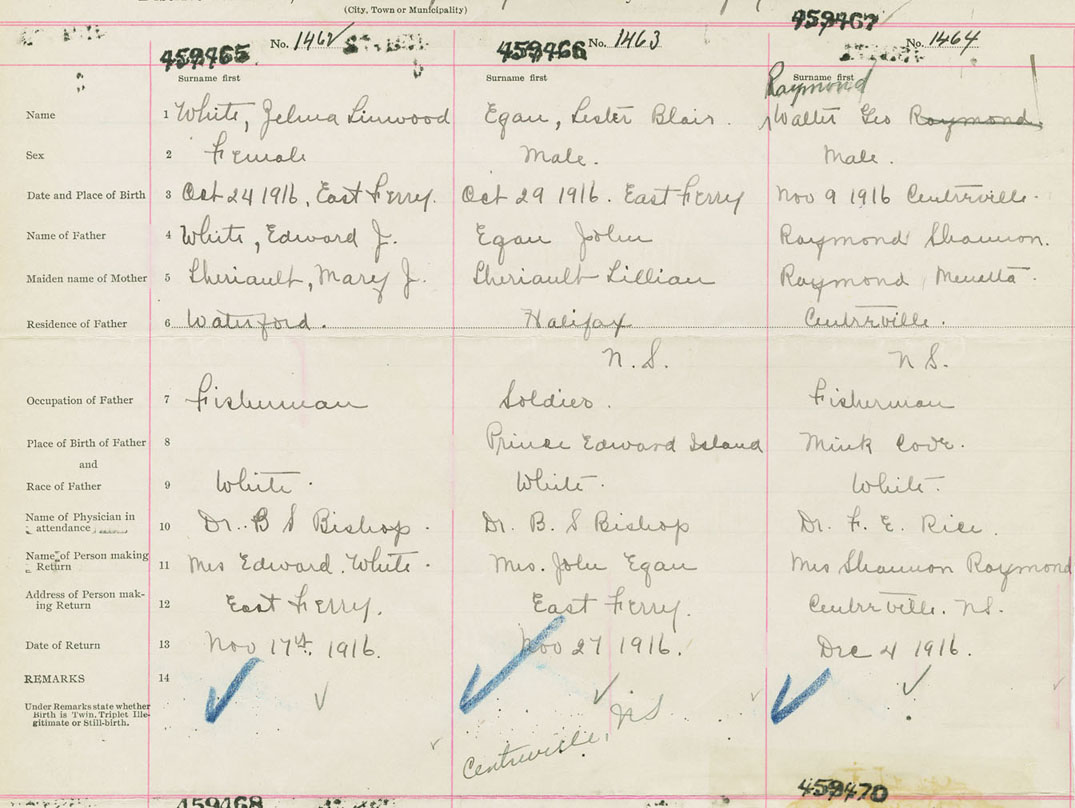 (City, Town or Municipality)
459465 No. 1462
459466 No. 1463
459467 No. 1464
Surname first Surname first Surname first
Raymond
Name 1 White, Zelma Linwood Egan, Lester Blair. Walter Geo Raymond
Sex 2 Female Male. Male.
Date and Place of Birth 3 Oct 24 1916, East Ferry. Oct 29 1916. East Ferry Nov 9 1916 Centreville.
Name of Father 4 White, Edward J. Egan John Raymond Shannon.
Maiden name of Mother 5 Theriault, Mary J. Theriault Lillian Raymond, Menetta.
Residence of Father 6 Waterford. Halifax Centreville.
N.S. N S.
Occupation of Father 7 Fisherman Soldier. Fisherman
Place of Birth of Father 8 Prince Edward Island Mink Cove.
and
Race of Father 9 White. White. White.
Name of Physician in
attendance 10 Dr. B S Bishop. Dr. B. S Bishop Dr. F. E. Rice.
Name of Person making
Return 11 Mrs Edward. White. Mrs. John Egan Mrs Shannon Raymond
Address of Person mak-
ing Return 12 East Ferry. East Ferry. Centreville. N.S.
Date of Return 13 Nov 17th. 1916. Nov 27 1916. Dec 4 1916.
REMARKS 14
Under Remarks state whether
Birth is Twin, Triplet Ille-
gitimate or Still-birth.
Centreville, NS
459468 459470